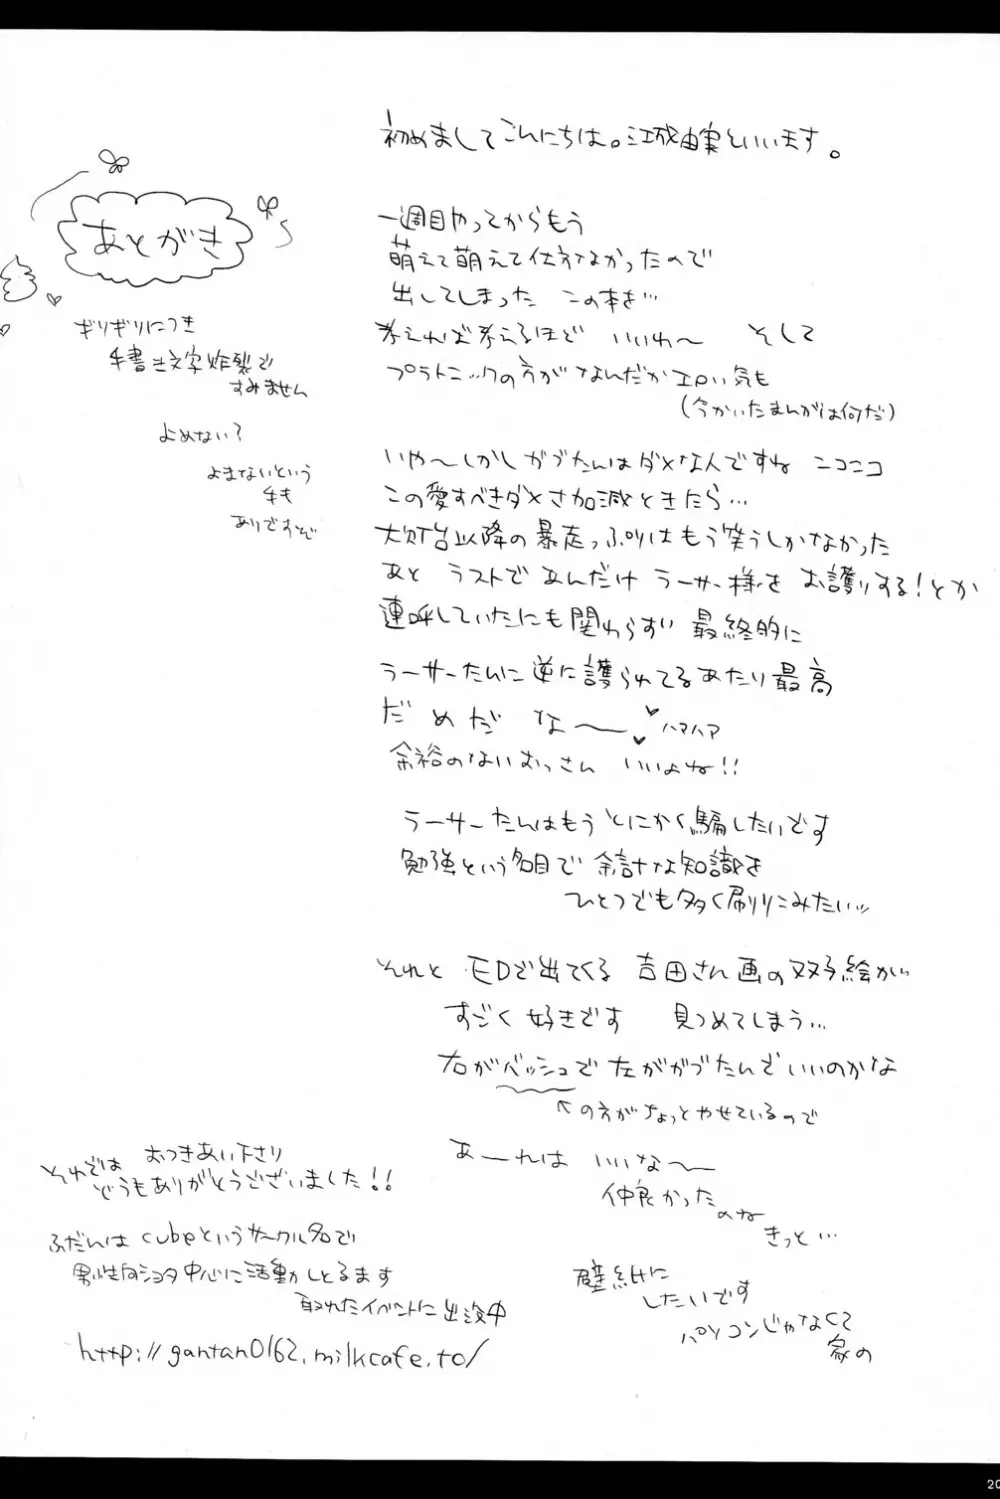 初めましてこんにちは。江城由実といいます。
あとがき
ギリギリにつき
手書き文字炸裂で
すみません
よめない?
よまないという
手も
ありですぞ
一週目やってからもう
萌えて萌えて仕方なかったので
出してしまった この本を…
考えれば考えるほど いいわ〜 そして
プラトニックの方がなんだかエロい気も
(今かいたまんがは何だ)
いや〜しかしガブたんはダメな人ですね ニコニコ
この愛すべきダメさ加減ときたら…
大灯台以降の暴走っぷりはもう笑うしかなかった
あと ラストであんだけ ラーサー様をお護りする!とか
連呼していたにも関わらず 最終的に
ラーサーたんに逆に護られてるあたり最高
だめだな〜 ハァハァ
余裕のないおっさん いいよね!!
ラーサーたんはもうとにかく騙したいです
勉強という名目で余計な知識を
ひとつでも多く刷りこみたい
それと EDで出てくる 吉田さん画の双子絵が
すごく好きです 見つめてしまう…
右がバッシュで左がガブたんでいいのかな
←の方がちょっとやせているので
あーれは いいな〜
仲良かった
のね
きっと…
壁紙に
したいです
パソコンじゃなくて
家の
それでは おつきあい下さり
どうもありがとうございました!!
ふだんはcubeというサークル名で
男性向ショタ中心に活動しとるます
取れたイベントに出没中
http://gantan0162.milkcafe.to/
20